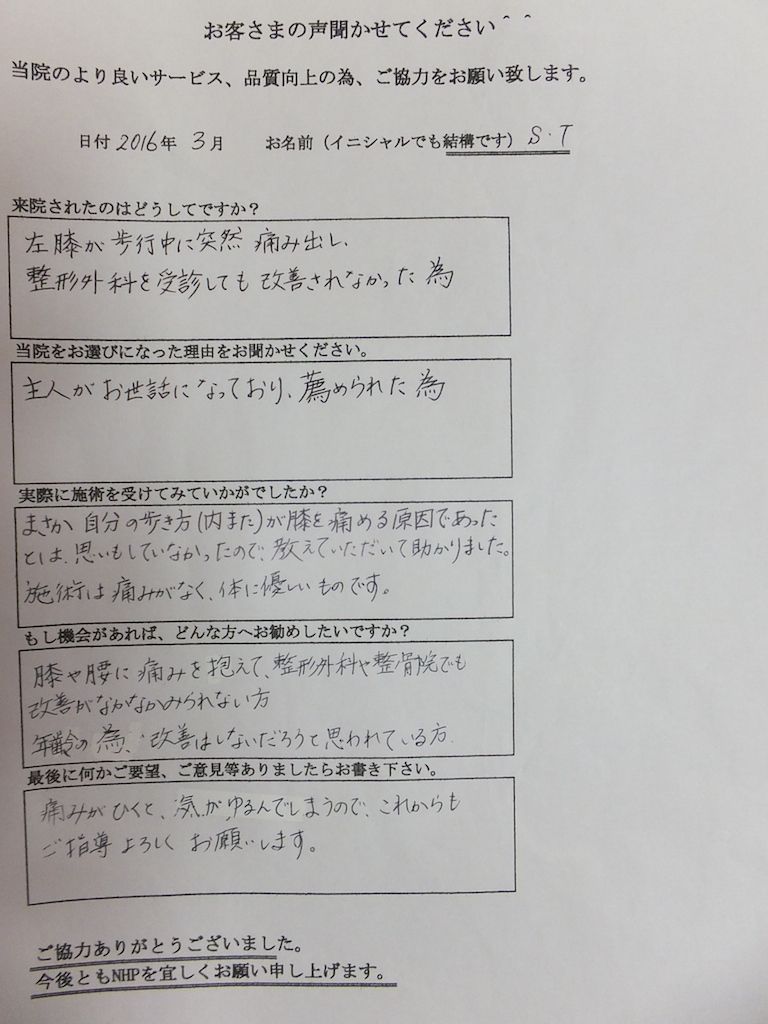 お客さまの声聞かせてください＾＾
当院のより良いサービス、品質向上の為、ご協力をお願い致します。
日付 2016年 3月 お名前（イニシャルでも結構です） S・T
来院されたのはどうしてですか？
左膝が歩行中に突然痛み出し、
整形外科を受診しても改善されなかった為
当院をお選びになった理由をお聞かせください。
主人がお世話になっており、薦められた為
実際に施術を受けてみていかがでしたか？
まさか自分の歩き方(内また)が膝を痛める原因であった
とは、思いもしていなかったので、教えていただいて助かりました。
施術は痛みがなく、体に優しいものです。
もし機会があれば、どんな方へお勧めしたいですか？
膝や腰に痛みを抱えて、整形外科や整骨院でも
改善がなかなかみられない方
年齢の為、改善はしないだろうと思われている方.
最後に何かご要望、ご意見等ありましたらお書き下さい。
痛みがひくと、気がゆるんでしまうので、これからも
ご指導よろしくお願いします。
ご協力ありがとうございました。
今後ともNHPを宜しくお願い申し上げます。